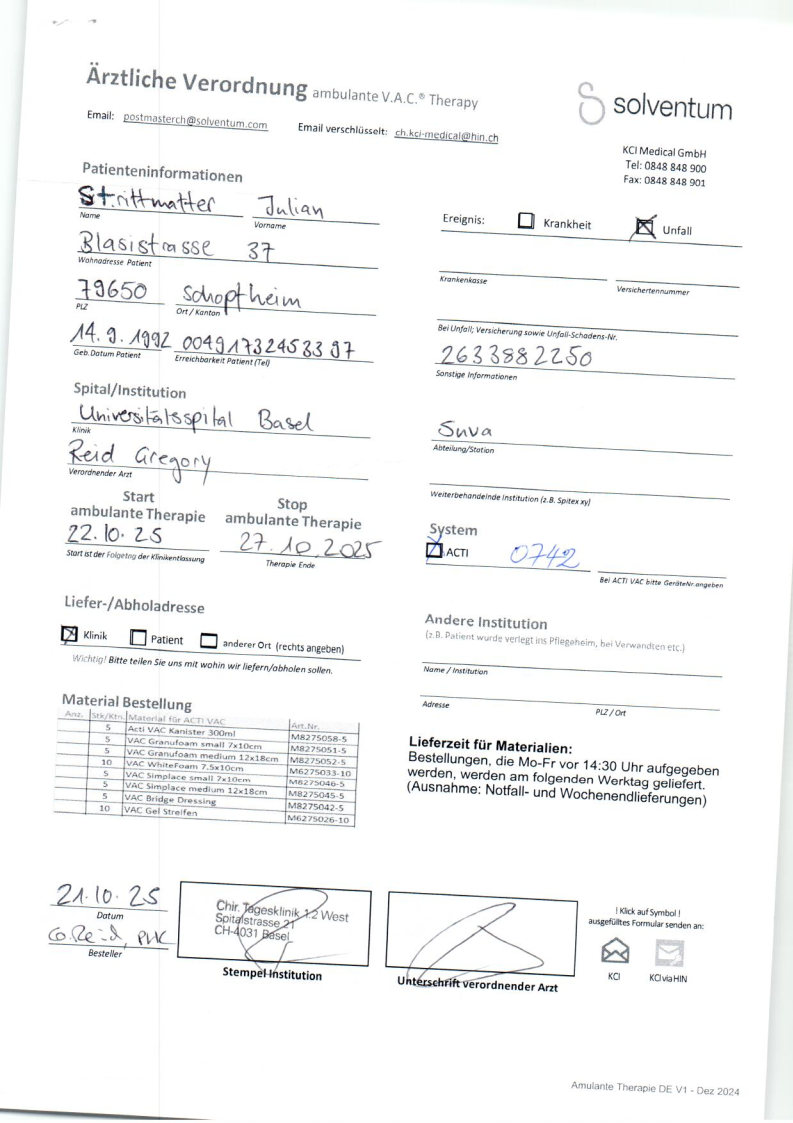 Ärztliche Verordnung ambulante V.A.C.® Therapy
solventum
Email: postmasterch@solventum.com Email verschlüsselt: ch.kci-medical@hin.ch
KCI Medical GmbH
Tel: 0848 848 900
Fax: 0848 848 901
Patienteninformationen
Strittmatter Julian
Name Vorname
Blasistrasse 37
Wohnadresse Patient
79650 Schopfheim
PLZ Ort / Kanton
14. 9. 1992 004917324533 97
Geb.Datum Patient Erreichbarkeit Patient (Tel)
Ereignis: Krankheit Unfall
Krankenkasse Versichertennummer
Bei Unfall; Versicherung sowie Unfall-Schadens-Nr.
2633882250
Sonstige Informationen
Spital/Institution
Universitätsspital Basel
Klinik
Reid Gregory
Verordnender Arzt
Suva
Abteilung/Station
Weiterbehandelnde Institution (z.B. Spitex xy)
Start
ambulante Therapie
22.10.25
Start ist der Folgetag der Klinikentlassung
Stop
ambulante Therapie
27.10.2025
Therapie Ende
System
ACTI 0742
Bei ACTI VAC bitte GeräteNr.angeben
Liefer-/Abholadresse
Klinik Patient anderer Ort (rechts angeben)
Wichtig! Bitte teilen Sie uns mit wohin wir liefern/abholen sollen.
Andere Institution
(z.B. Patient wurde verlegt ins Pflegeheim, bei Verwandten etc.)
Name / Institution
Adresse PLZ / Ort
Material Bestellung
Anz. Stk/Ktn. Material für ACTI VAC Art.Nr.
5 Acti VAC Kanister 300ml M8275058-5
5 VAC Granufoam small 7x10cm M8275051-5
5 VAC Granufoam medium 12x18cm M8275052-5
10 VAC WhiteFoam 7.5x10cm M6275033-10
5 VAC Simplace small 7x10cm M8275046-5
5 VAC Simplace medium 12x18cm M8275045-5
5 VAC Bridge Dressing M8275042-5
10 VAC Gel Streifen M6275026-10
Lieferzeit für Materialien:
Bestellungen, die Mo-Fr vor 14:30 Uhr aufgegeben
werden, werden am folgenden Werktag geliefert.
(Ausnahme: Notfall- und Wochenendlieferungen)
21.10.25
Datum
G.Reid,
Besteller
Chir. Tagesklinik 1.2 West
Spitalstrasse 21
CH-4031 Basel
Stempel Institution
Unterschrift verordnender Arzt
! Klick auf Symbol !
ausgefülltes Formular senden an:
KCI KCI via HIN
Amulante Therapie DE V1 - Dez 2024